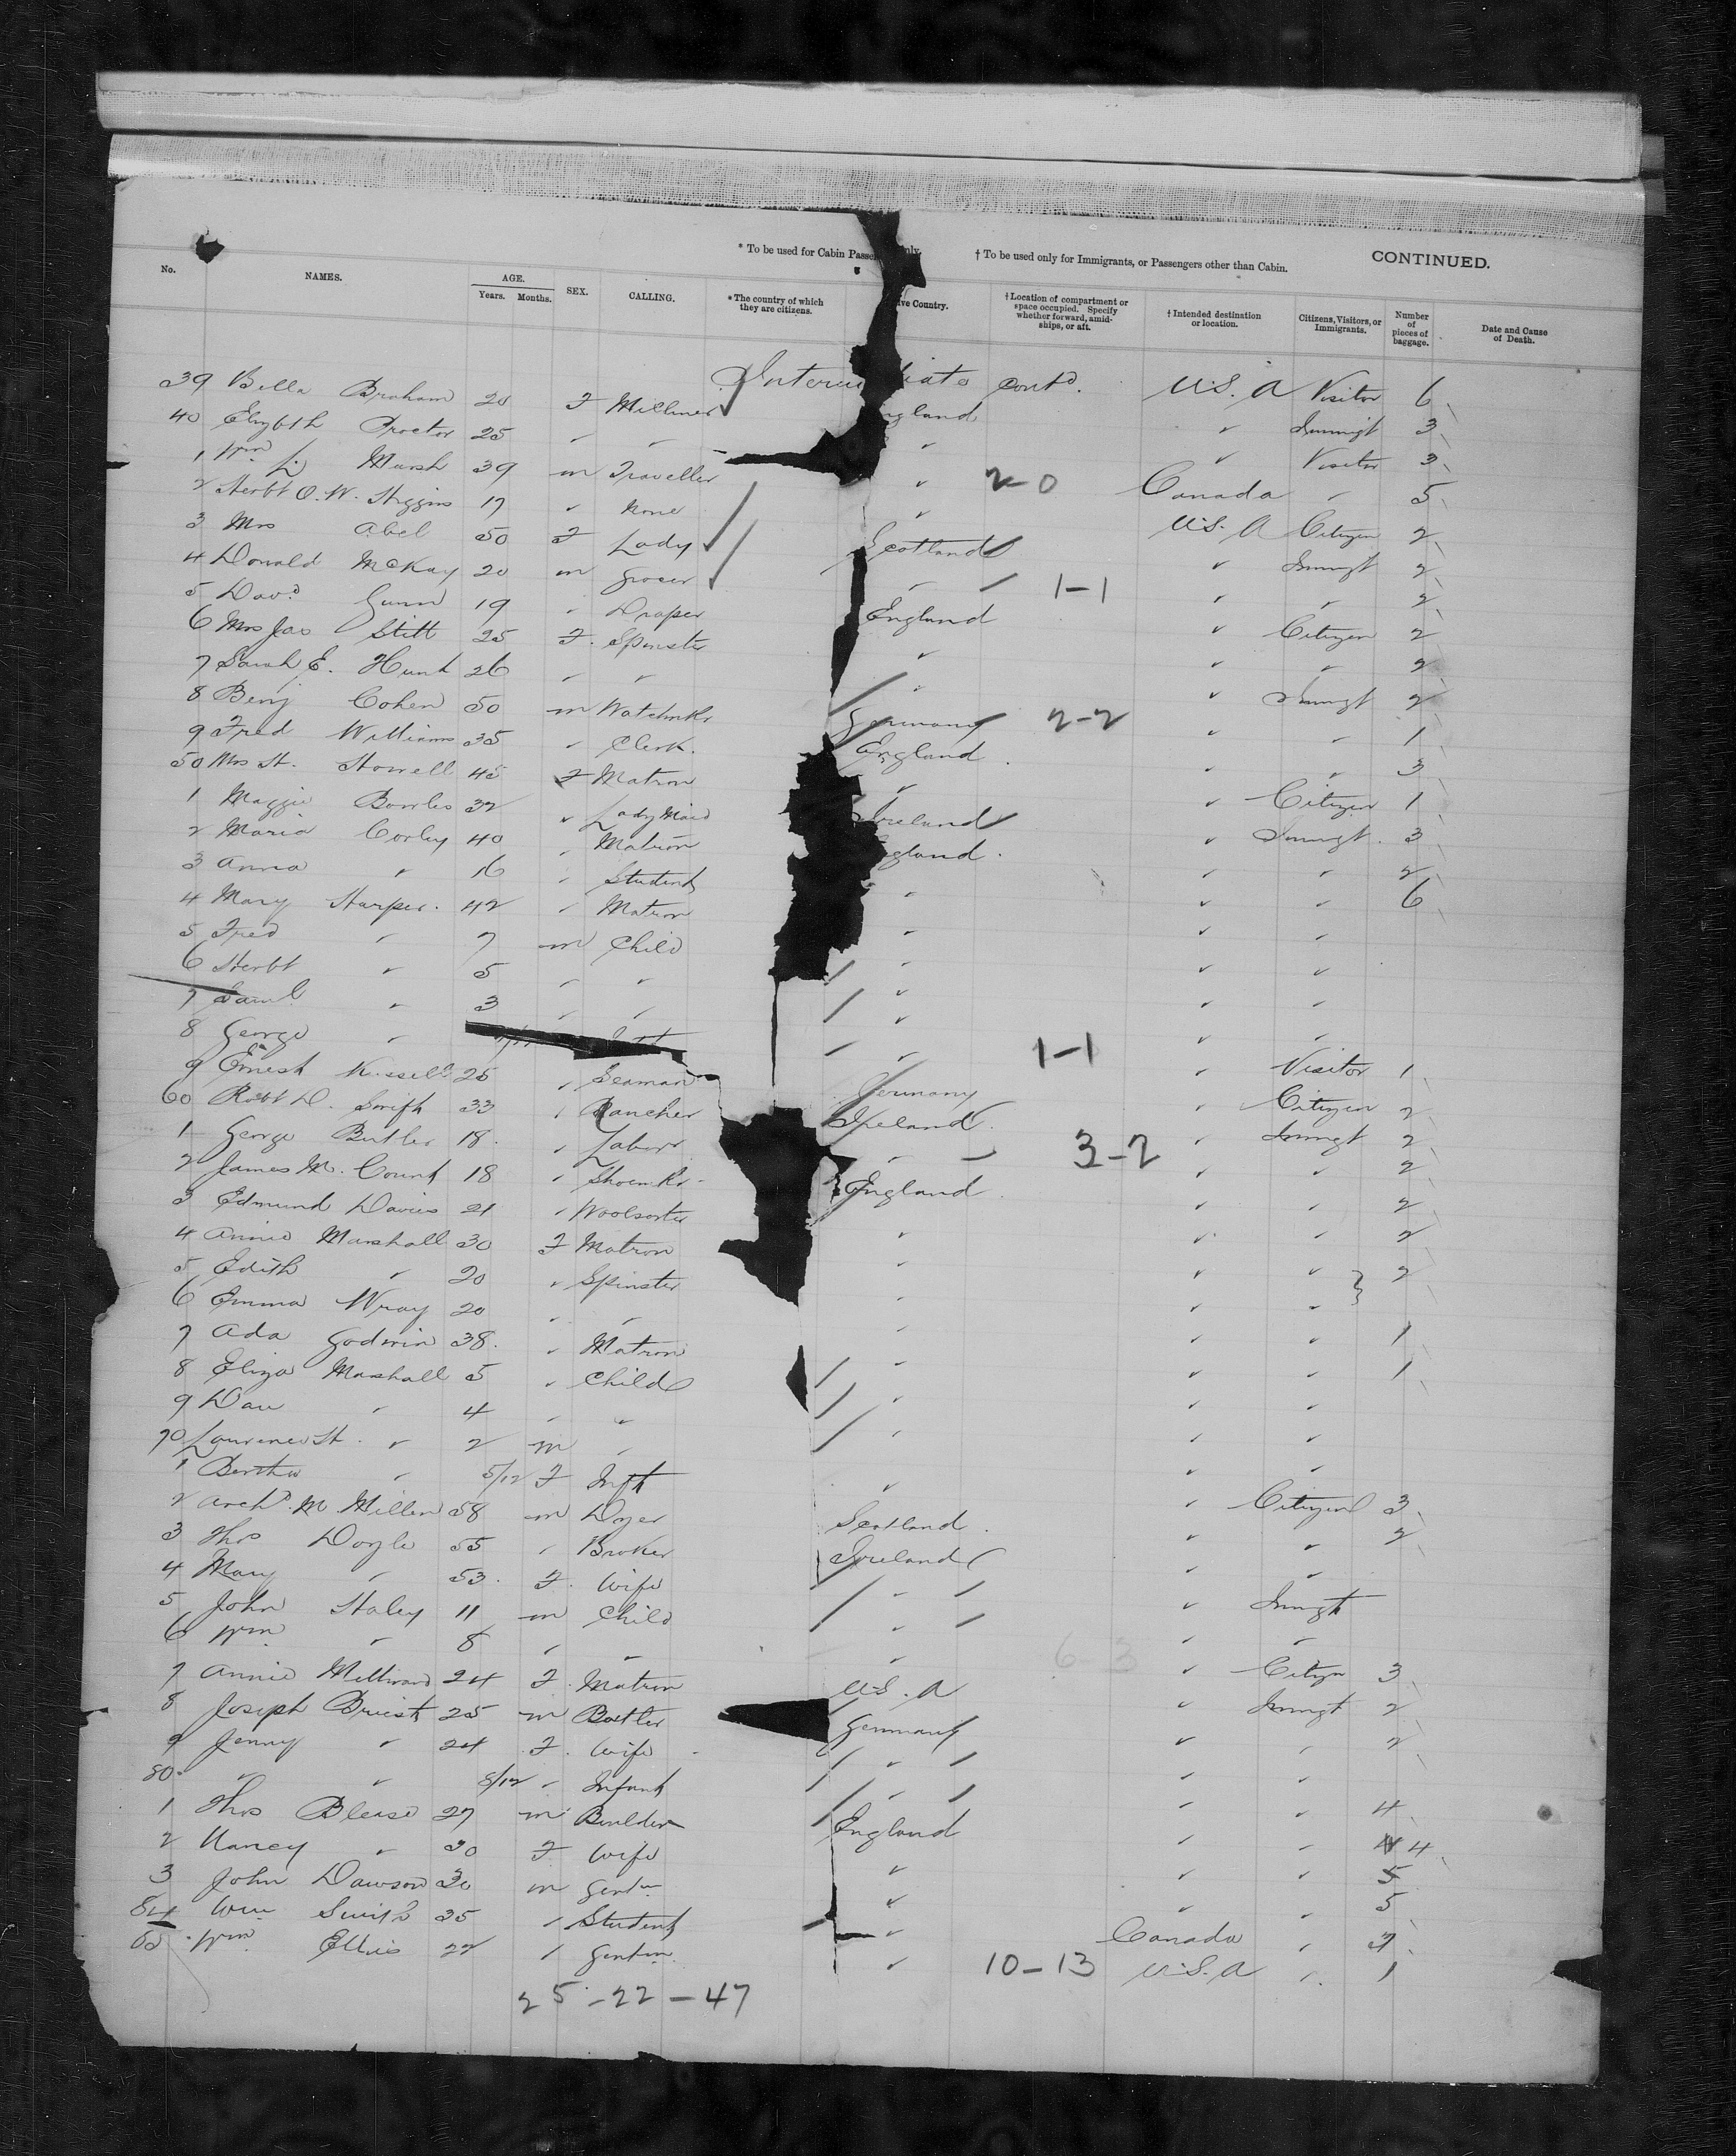 * To be used for Cabin Passen only.
† To be used only for Immigrants, or Passengers other than Cabin.
CONTINUED.
No. NAMES. AGE. Years. Months. SEX. CALLING. * The country of which they are citizens. ive Country. † Location of compartment or space occupied. Specify whether forward, amidships, or aft. † Intended destination or location. Citizens, Visitors, or Immigrants. Number of pieces of baggage. Date and Cause of Death.
Intermediate Contd.
39 Bella Braham 20 F Milliner England U.S.A Visitor 6
40 Elizbth Proctor 25 " " " " Immigt 3
1 Wm L. Marsh 39 m Traveller " " Visitor 3
2 Herbt O.W. Higgins 17 " None " 2-0 Canada " 5
3 Mrs Abel 50 F Lady Scotland U.S.A Citizen 2
4 Donald McKay 20 m Grocer " 1-1 " Immigt 2
5 Davd Gunn 19 " Draper England " " 2
6 Mrs Jas Stitt 25 F. Spinster " " Citizen 2
7 Sarah E. Hunt 26 " " " " " 2
8 Benj Cohen 50 m Watchmkr Germany 2-2 " Immigt 2
9 Fred Williams 35 " Clerk. England " " 1
50 Mrs H. Howell 45 F Matron " " " 3
1 Maggie Bowles 32 " Lady Maid Ireland " Citizen 1
2 Maria Corley 40 " Matron England " Immigt 3
3 Anna " 16 " Student " " " 2
4 Mary Harper. 42 " Matron " " " 6
5 Fred " 7 m Child " " "
6 Herbt " 5 " " " " "
7 Saml " 3 " " " " "
8 George " " 1-1 " "
9 Ernest 25 " Seaman Germany " Visitor 1
60 Robt D. Smith 33 " Rancher Ireland " Citizen 2
1 George Butler 18 " Labour " 3-2 " Immigt 2
2 James M. Count 18 " Shoemkr England " " 2
3 Edmund Davies 21 " Woolsorter " " 2
4 Annie Marshall 30 F Matron " " " 2
5 Edith " 20 " Spinster " " " 2
6 Emma Wray 20 " " " " "
7 Ada Godwin 38. " Matron " " " 1
8 Eliza Marshall 5 " Child " " " 1
9 " 4 " " " " "
70 Laurence H. " 2 m " " " "
1 Bertha " 5/12 F Inft " " "
2 Archd. M Millen 58 m Dyer Scotland " Citizen 3
3 Thos Doyle 55 " Broker Ireland " " 2
4 Mary " 53. F. Wife " " "
5 John Staley 11 m Child " " Immgt
6 Wm " 8 " " " 6-3 " "
7 Annie Millward 24 F. Matron U.S.A " Citizn 3
8 Joseph Briest 25 m Butler Germany " Immgt 2
9 Jenny " 24 F. Wife " " " 2
80 " " 8/12 " Infant " " "
1 Thos Blease 27 m Builder England " " 4
2 Nancy " 30 F Wife " " " 4
3 John Dawson 30 m Gentn " " " 5
84 Wm Smith 35 " Student " Canada " 5
85 Wm Ellis 22 " Gentmn. " 10-13 U.S.A " 1
25-22-47